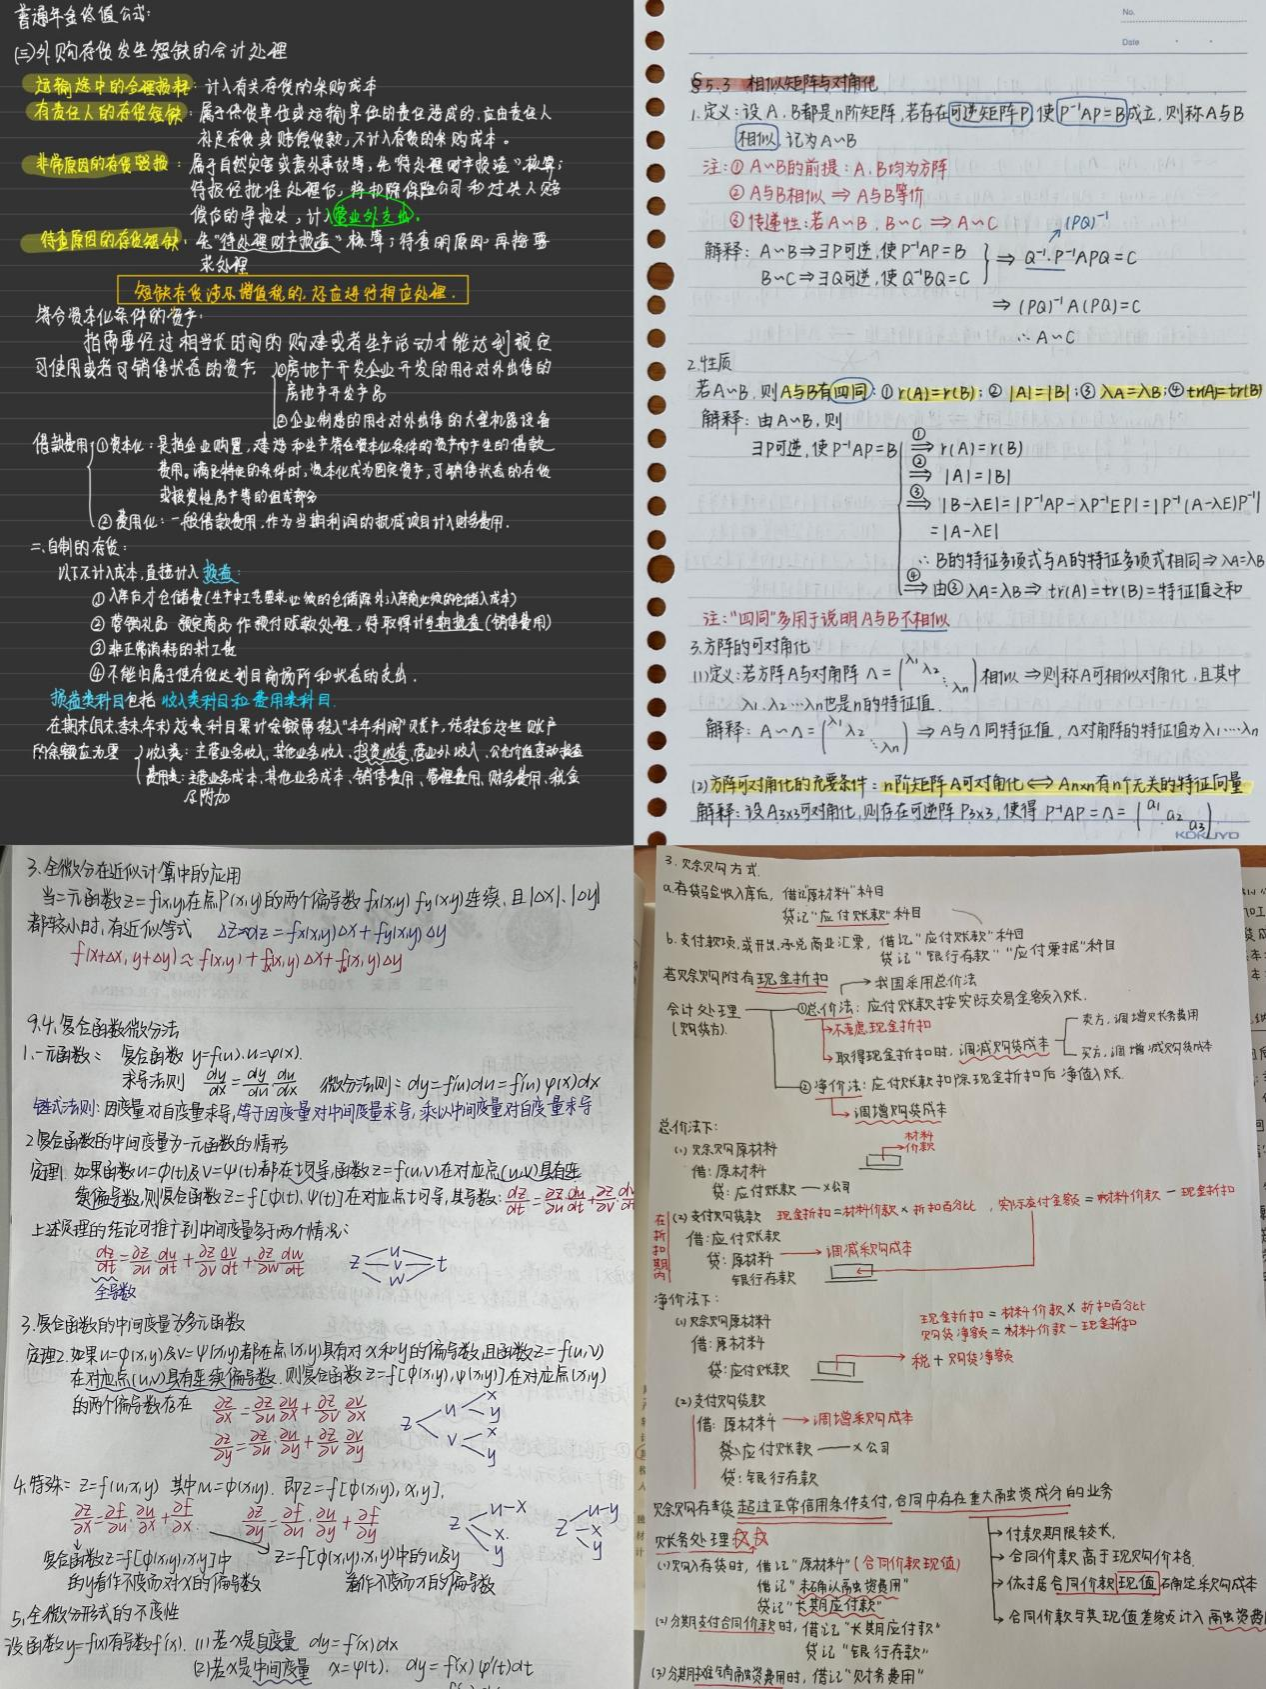 普通年金终值公式:
(三)外购存货发生短缺的会计处理
运输途中的合理损耗: 计入有关存货的采购成本
有责任人的存货短缺: 属于供货单位或运输单位的责任造成的,应由责任人
补足存货或赔偿货款,不计入存货的采购成本。
非常原因的存货毁损: 属于自然灾害或意外事故等,先"待处理财产损溢"核算;
待报经批准处理后,将扣除保险公司和过失人赔
偿后的净损失,计入营业外支出。
待查原因的存货短缺: 先"待处理财产损溢"核算;待查明原因再按要
求处理
短缺存货涉及增值税的,还应进行相应处理.
符合资本化条件的资产:
指需要经过相当长时间的购建或者生产活动才能达到预定
可使用或者可销售状态的资产. ①房地产开发企业开发的用于对外出售的
房地产开发产品
②企业制造的用于对外出售的大型机器设备
借款费用 ①资本化:是指企业购置,建造和生产符合资本化条件的资产而产生的借款
费用。满足特定的条件时,资本化成为固定资产,可销售状态的存货
或投资性房产等的组成部分
②费用化:一般借款费用,作为当期利润的抵减项目计入财务费用.
二.自制的存货:
以下不计入成本,直接计入损益:
①入库后才仓储费
②营销礼品
计当期损益(销售费用)
③非正常消耗的料工费
④不能归属于使存货达到目前场所和状态的支出.
损益类科目包括 收入类科目和费用类科目.
的余额应为零 收入类: 主营业务收入,其他业务收入,投资收益,营业外收入,公允价值变动损益
费用类:主营业务成本,其他业务成本,销售费用,管理费用,财务费用,税金
及附加
No.
Date
§5.3 相似矩阵与对角化
1.定义:设A、B都是n阶矩阵,若存在可逆矩阵P,使P⁻¹AP=B成立,则称A与B
相似,记为A∽B
注:①A∽B的前提:A、B均为方阵
②A与B相似⇒A与B等价
③传递性:若A∽B、B∽C ⇒ A∽C
(PQ)⁻¹
解释: A∽B⇒∃P可逆,使P⁻¹AP=B
B∽C⇒∃Q可逆,使Q⁻¹BQ=C
⇒ Q⁻¹·P⁻¹APQ=C
⇒ (PQ)⁻¹A(PQ)=C
∴A∽C
2.性质
若A∽B,则A与B有四同:①r(A)=r(B);②|A|=|B|;③λA=λB;④trA=tr(B)
解释:由A∽B,则
∃P可逆,使P⁻¹AP=B ①⇒ r(A)=r(B)
②⇒ |A|=|B|
③⇒ |B-λE|=|P⁻¹AP-λP⁻¹EP|=|P⁻¹(A-λE)P⁻¹|
=|A-λE|
∴B的特征多项式与A的特征多项式相同⇒λA=λB
④⇒由③λA=λB⇒tr(A)=tr(B)=特征值之和
注:"四同"多用于说明A与B不相似
3.方阵的可对角化
(1)定义:若方阵A与对角阵Λ=(λ1 λ2 ⋱ λn)相似⇒则称A可相似对角化,且其中
λ1、λ2⋯λn也是n的特征值.
解释: A∽Λ=(λ1 λ2 ⋱ λn) ⇒A与Λ同特征值,Λ对角阵的特征值为λ1⋯λn
(2)方阵可对角化的充要条件:n阶矩阵A可对角化⇔An×n有n个无关的特征向量
解释:设A3×3可对角化,则存在可逆阵P3×3,使得P⁻¹AP=Λ=(a1 a2 a3)
KOKUYO
3.全微分在近似计算中的应用
当二元函数z=f(x,y)在点P(x,y)的两个偏导数fx(x,y) fy(x,y)连续,且|Δx|、|Δy|
都较小时,有近似等式 Δz≈dz=fx(x,y)Δx+fy(x,y)Δy
f(x+Δx,y+Δy)≈f(x,y)+fx(x,y)Δx+fy(x,y)Δy
9.4.复合函数微分法
1.一元函数: 复合函数 y=f(u).u=φ(x).
求导法则 dy/dx=dy/du·du/dx 微分法则:dy=f'(u)du=f'(u)φ'(x)dx
链式法则:因变量对自变量求导,等于因变量对中间变量求导,乘以中间变量对自变量求导
2.复合函数的中间变量为一元函数的情形
定理1.如果函数u=φ(t)及v=ψ(t)都在t可导,函数z=f(u,v)在对应点(u,v)具有连
续偏导数,则复合函数z=f[φ(t),ψ(t)]在对应点t可导,其导数:dz/dt=∂z/∂u du/dt+∂z/∂v dv
上述定理的结论可推广到中间变量多于两个情况:
dz/dt=∂z/∂u du/dt+∂z/∂v dv/dt+∂z/∂w dw/dt z u v w t
全导数
3.复合函数的中间变量为多元函数
定理2.如果u=φ(x,y)及v=ψ(x,y)都在点(x,y)具有对x和y的偏导数,且函数z=f(u,v)
在对应点(u,v)具有连续偏导数.则复合函数z=f[φ(x,y),ψ(x,y)]在对应点(x,y)
的两个偏导数存在 ∂z/∂x=∂z/∂u ∂u/∂x+∂z/∂v ∂v/∂x z u x y
∂z/∂y=∂z/∂u·∂u/∂y+∂z/∂v ∂v/∂y v x y
4.特殊: z=f(u,x,y) 其中u=φ(x,y). 即z=f[φ(x,y),x,y].
∂z/∂x=∂f/∂u·∂u/∂x+∂f/∂x ∂z/∂y=∂f/∂u·∂u/∂y+∂f/∂y z u-x x. y z u-y x y
复合函数z=f[φ(x,y),x,y]中 z=f[φ(x,y),x,y)中的u及y
的y看作不变而对x的偏导数 看作不变而x的偏导数
5,全微分形式的不变性
设函数y=f(x)有导数f'(x). (1)若x是自变量 dy=f'(x)dx
(2)若x是中间变量 x=φ(t). dy=f'(x)φ'(t)dt
3.赊购方式.
a.存货验收入库后, 借记"原材料"科目
贷记"应付账款"科目
b.支付款项,或开出、承兑商业汇票, 借记"应付账款"科目
贷记"银行存款""应付票据"科目
若赊购附有现金折扣 我国采用总价法
会计处理 ①总价法:应付账款按实际交易金额入账.
(购货方). 不考虑现金折扣
卖方,调增财务费用
取得现金折扣时,调减购货成本
买方,调增减购货成本
②净价法:应付账款扣除现金折扣后净值入账.
调增购货成本
总价法下:
(1)赊购原材料 材料价款
借:原材料
贷:应付账款——X公司
在折扣期内
(2)支付购货款 现金折扣=材料价款×折扣百分比,实际应付金额=材料价款-现金折扣
借:应付账款
贷:原材料 调减采购成本
银行存款
净价法下:
(1)赊购原材料 现金折扣=材料价款×折扣百分比
购货净额=材料价款-现金折扣
借:原材料
贷:应付账款 税+购货净额
(2)支付购货款
借:原材料 调增采购成本
贷:应付账款——X公司
贷:银行存款
赊购存货超过正常信用条件支付,合同中存在重大融资成分的业务
付款期限较长.
账务处理 合同价款高于现购价格.
(1)购入存货时,借记"原材料"(合同价款现值) 依据合同价款现值确定采购成本
借记"未确认融资费用"
贷记"长期应付款" 合同价款与其现值差额计入融资费
(2)分期支付合同价款时,借记"长期应付款"
贷记"银行存款"
(3)分期摊销融资费用时,借记"财务费用"